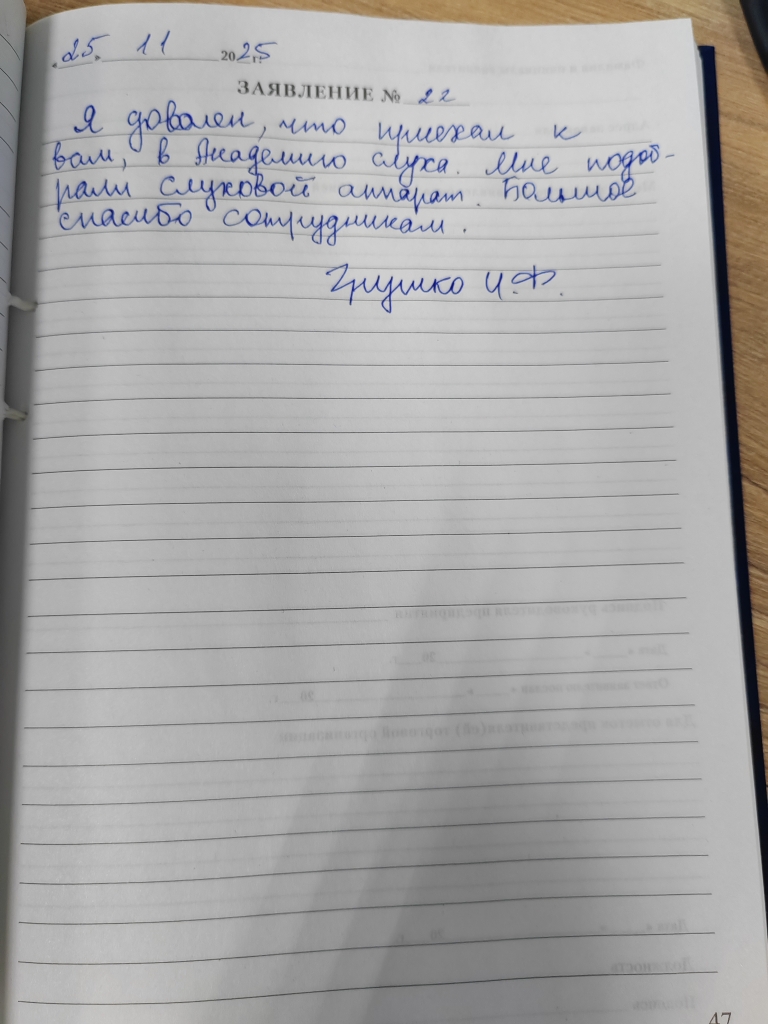 «25» 11 2025 г.
ЗАЯВЛЕНИЕ № 22
Я доволен, что приехал к
вам, в Академию слуха. Мне подоб-
рали слуховой аппарат. Большое
спасибо сотрудникам.
Грушко И.Ф.
47